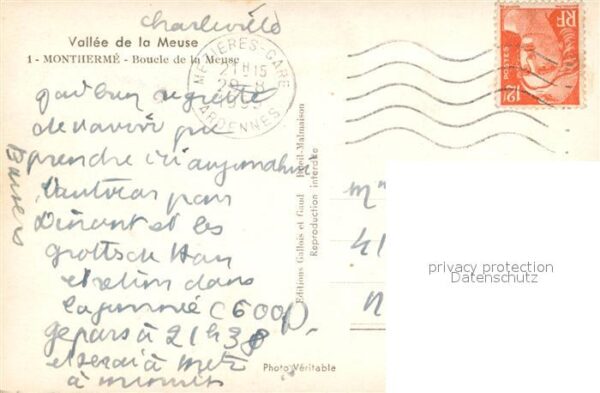 Charleville
Vallée de la Meuse
1 - MONTHERMÉ - Boucle de la Meuse
MÉZIÈRES-GARE
21H15
29-8
ARDENNES
POSTES
RF
12F
regrette
de n'avoir pu
prendre ici aujourd'hui
l'autocar pour
Dinant et les
grottes de Han
et retour dans
la journée (600
je pars à 21h38
et serai à Metz
à minuit
Baisers
Editions Gallois et Gaud Benoit-Malmaison
Reproduction interdite
Photo Véritable
privacy protection
Datenschutz